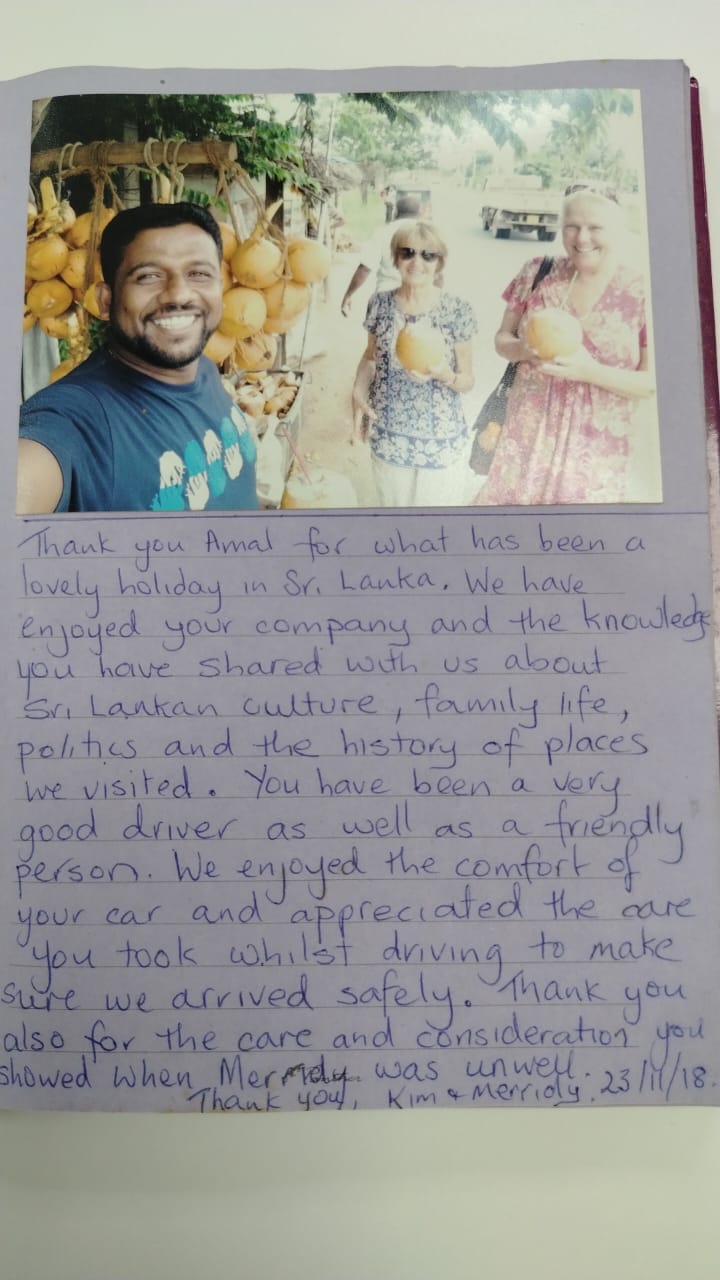 Thank you Amal for what has been a
lovely holiday in Sri Lanka. We have
enjoyed your company and the knowledge
you have shared with us about
Sri Lankan culture, family life,
politics and the history of places
we visited. You have been a very
good driver as well as a friendly
person. We enjoyed the comfort of
your car and appreciated the care
you took whilst driving to make
sure we arrived safely. Thank you
also for the care and consideration you
showed when was unwell.
Thank you, Kim & Merridy. 23/11/18.